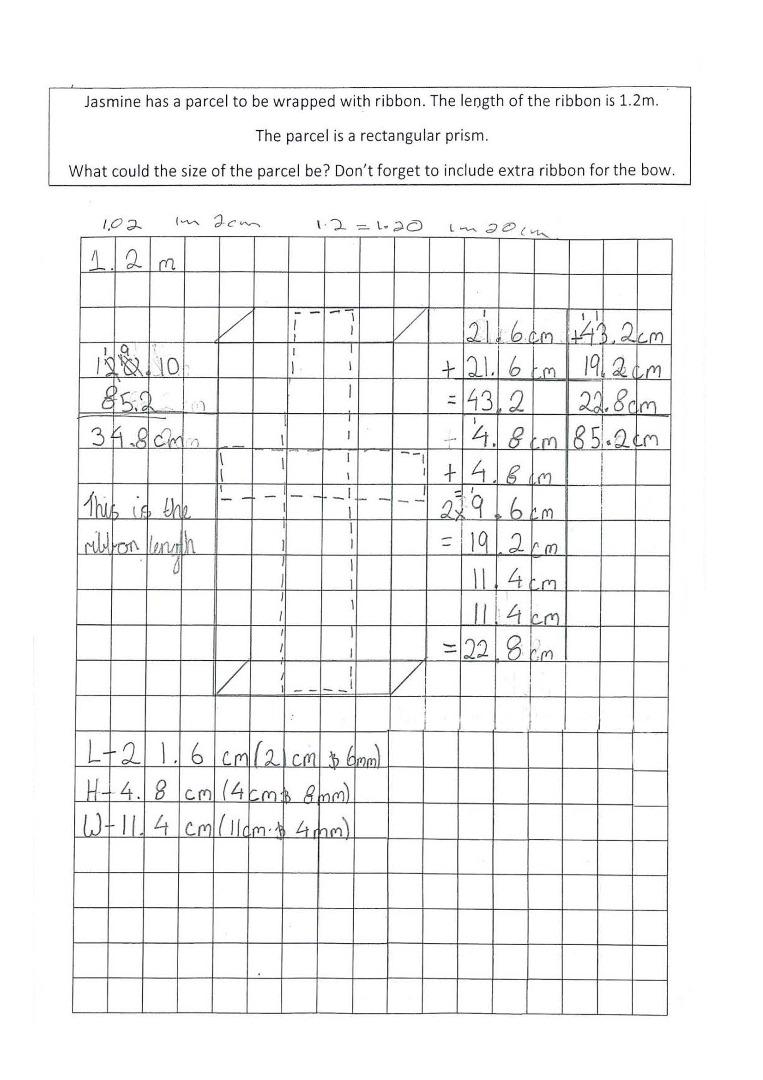 Jasmine has a parcel to be wrapped with ribbon. The length of the ribbon is 1.2m.
The parcel is a rectangular prism.
What could the size of the parcel be? Don't forget to include extra ribbon for the bow.
1.02 1m 2cm 1.2 = 1.20 1m 20cm
1.2 m
21.6cm
+ 21.6cm
= 43.2
+ 4.8cm
+ 4.8cm
2x 9.6cm
= 19.2cm
11.4cm
11.4cm
= 22.8cm
+43.2cm
19.2cm
22.8cm
85.2cm
120.10
85.2
34.8cm
This is the
ribbon lengh
L-21.6 cm (21cm & 6mm)
H-4.8 cm (4cm & 8mm)
W-11.4 cm (11cm & 4mm)